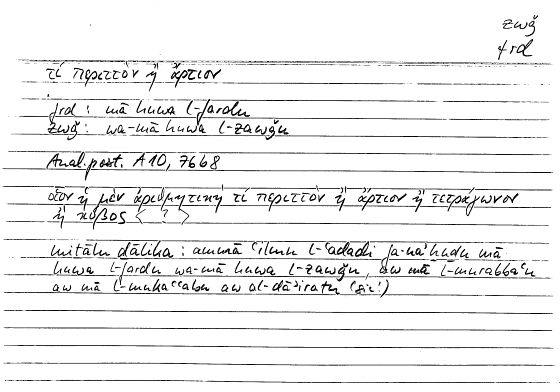 zwǧ
frd
τί περιττὸν ἢ ἄρτιον
frd: mā huwa l-fardu
zwǧ: wa-mā huwa l-zawǧu
Anal. post. A 10, 76b8
οἷον ἡ μὲν ἀριθμητικὴ τί περιττὸν ἢ ἄρτιον ἢ τετράγωνον
ἢ κύβος < ? >
miṯālu ḏālika: ammā ʿilmu l-ʿadadi fa-naʾḫuḏu mā
huwa l-fardu wa-mā huwa l-zawǧu, aw mā l-murabbaʿu
aw mā l-mukaʿʿabu aw al-dāʾiratu (sic!)